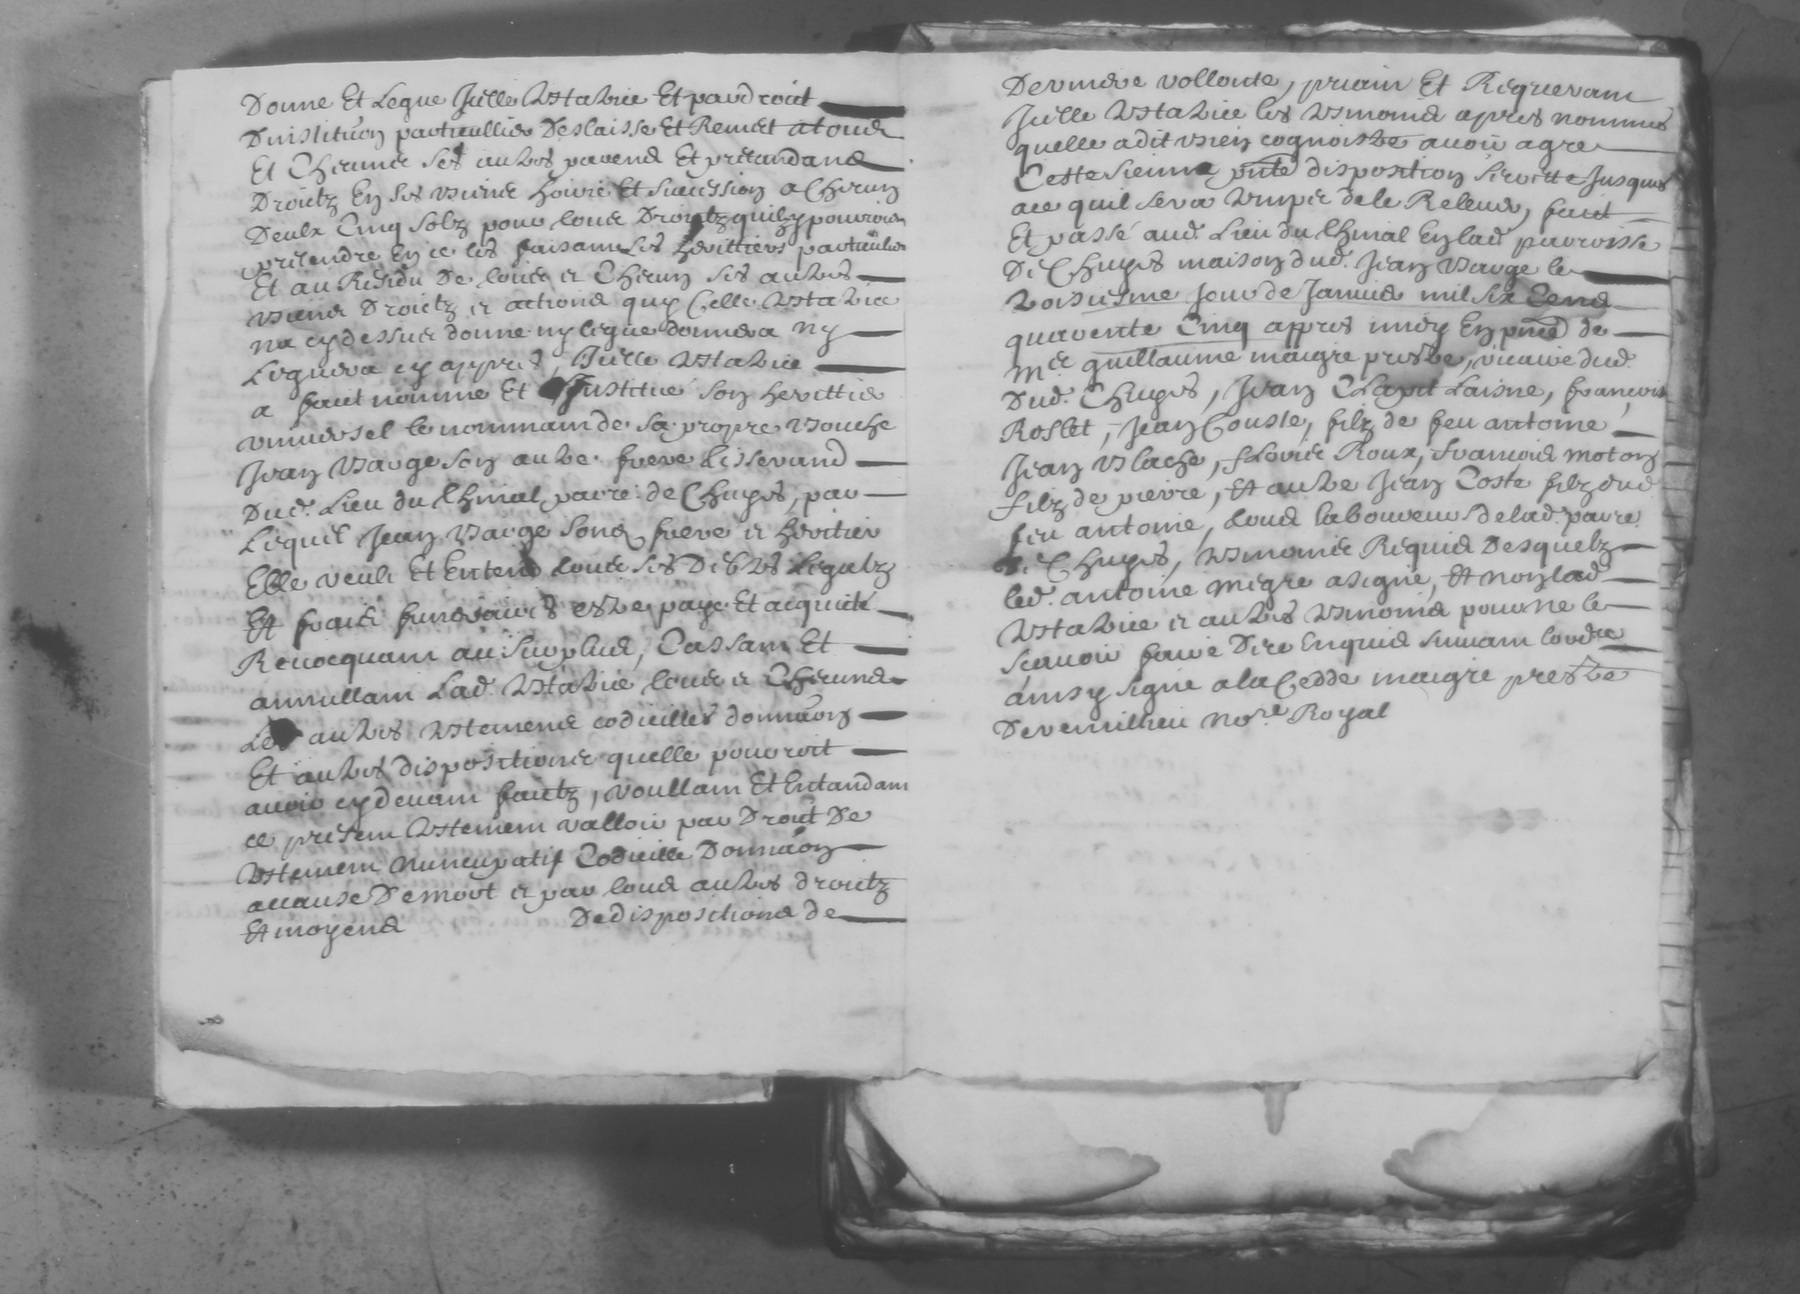 Donne Et Legue Icelle testatrice Et par droit
Dinstitution particulliere Deslaisse Et Remet a tous
Et Chacuns ses autres parens Et pretandans
Droictz En ses biens hoirie Et succession a Chacun
Deulx Cinq solz pour tous Droictz quilz pourroient
pretendre En ce les faisant ses herittiers particuliers
Et au Residu De tous et Chacun ses autres
biens Droictz et actions que Celle testatrice
na cy dessus donne ny legue donnera ny
Leguera cy appres, Icelle testatrice
a faict nomme Et Institue son herittier
universel le nommant de sa propre bouche
Jean Barge son autre frere tisserand
Dud. Lieu du Chinal, parre. de Chupes, par
Lequel Jean Barge sond. frere et heritier
Elle veult Et Entend tous ses Debtes Legatz
Et fraitz funeraires estre paye Et acquicté
Revocquant au surplus, Cassant Et
annullant Lad. testatrice tous et Chacuns
Les autres testemens codicilles donnaon
Et autres dispositions quelle pourroit
avoir cy devant faictz, voullant Et Entandant
ce present testement valloir par Droict De
testement Nuncupatif Codicille Donnaon
a cause De mort et par tous autres droictz
Et moyens De dispositions de
Derniere vollonte, priant Et Requerant
Icelle testatrice les tesmoins apres nommes
quelle a dit bien cognoistre avoir agre
Cette sienne pnte disposition secrette Jusques
a ce quil sera temps de la Reveler, faict
Et passé aud. Lieu du Chinal En lad. parroisse
De Chupes maison dud. Jean Barge le
troisiesme Jour de Janvier mil six Cens
quarente Cinq appres midy En pnce de
Mre guillaume maigre prestre, vicaire dud.
Dud. Chupes, Jean Clapit Laisne, francois
Roslet, Jean Couste, filz de feu antoine
Jean Blache, florie Roux, francois moton
filz de pierre, Et autre Jean Coste filz dud.
feu antoine, tous laboureurs de lad. parre.
De Chupes, tesmoins Requis Desquelz
led. antoine megre a signe, Et non lad.
testatrice et autres tesmoins pour ne le
scavoir faire De ce Enquis suivant lordce
ainsy signe a la Cedde maigre prestre
Devernilhieu Nore. Royal